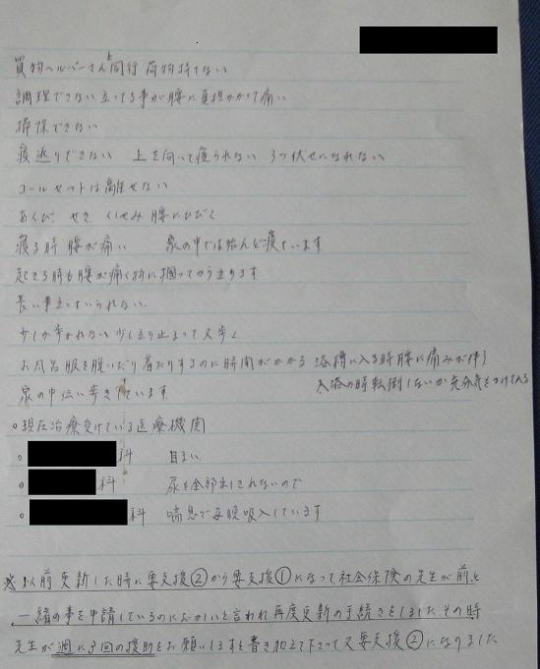 買物ヘルパーさんと同行 荷物持てない
調理できない 立ってる事が腰に負担かかって痛い
掃除できない
寝返りできない 上を向いて寝られない うつ伏せになれない
コールセットは離せない
あくび せき くしゃみ 腰にひびく
寝る時腰が痛い 家の中では殆んど寝ています
起きる時も腰が痛く物に掴ってから立ちます
長い事立っていられない
少しか歩かれない 少し立り止まって又歩く
お風呂服を脱いだり着たりするのに時間がかかる 浴槽に入る時腰に痛みが伴う
家の中伝い歩きしています 入浴の時転倒しないか充分気をつけてる
○現在治療受けている医療機関
○ 科 目まい
○ 科 尿を全部出しきれないので
○ 科 喘息で毎晩吸入しています
※以前更新した時に要支援②から要支援①になって社会保険の先生が前と
一緒の事を申請しているのにおかしいと言われ再度更新の手続きをしました その時
先生が週に3回の援助をお願いしますと書き加えて下さって又要支援②になりました